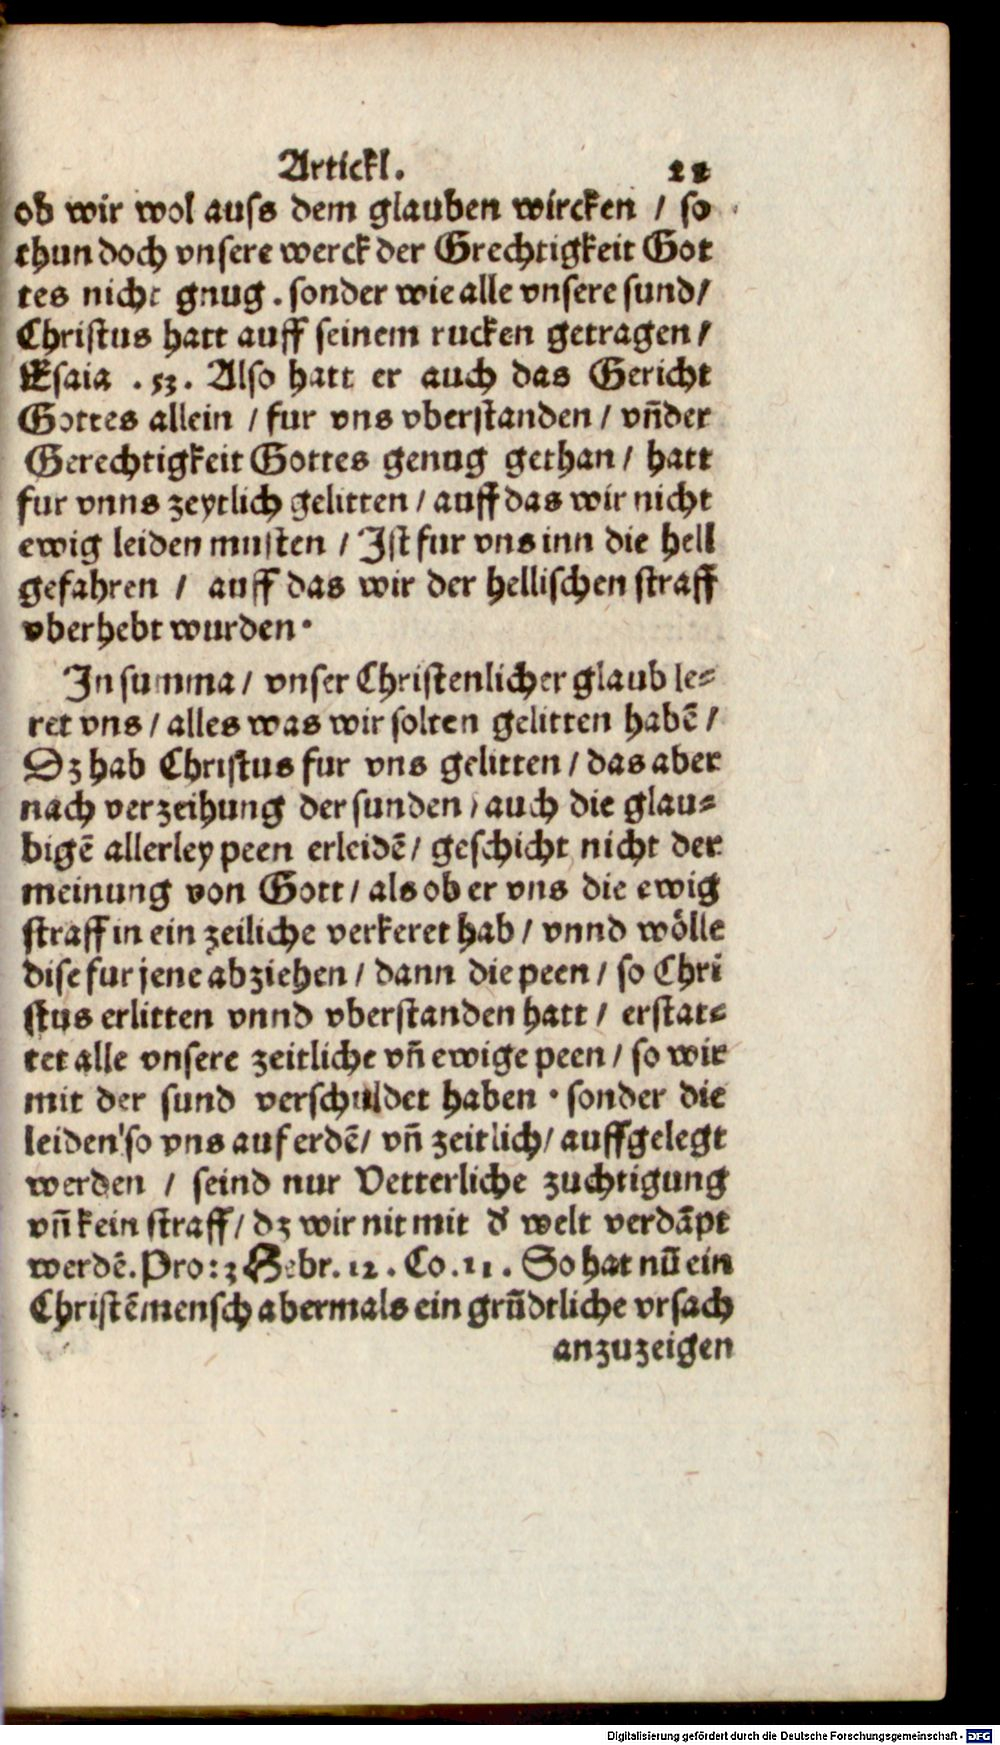 Artickl. 22
ob wir wol auss dem glauben wircken / so
thun doch vnsere werck der Grechtigkeit Got
tes nicht gnug . sonder wie alle vnsere sund /
Christus hatt auff seinem rucken getragen /
Esaia . 53 . Also hatt er auch das Gericht
Gottes allein / fur vns vberstanden / vn̄ der
Gerechtigkeit Gottes genug gethan / hatt
fur vnns zeytlich gelitten / auff das wir nicht
ewig leiden musten / Ist fur vns inn die hell
gefahren / auff das wir der hellischen straff
vberhebt wurden .
In summa / vnser Christenlicher glaub le⸗
ret vns / alles was wir solten gelitten habē /
Dz hab Christus fur vns gelitten / das aber
nach verzeihung der sunden / auch die glau⸗
bigē allerley peen erleidē / geschicht nicht der
meinung von Gott / als ob er vns die ewig
straff in ein zeiliche verkeret hab / vnnd wölle
dise fur jene abziehen / dann die peen / so Chri
stus erlitten vnnd vberstanden hatt / erstat⸗
tet alle vnsere zeitliche vn̄ ewige peen / so wir
mit der sund verschuldet haben . sonder die
leiden so vns auf erdē / vn̄ zeitlich / auffgelegt
werden / seind nur Vetterliche zuchtigung
vn̄ kein straff / dz wir nit mit d' welt verdāpt
werdē. Pro: 3 Hebr. 12 . Co . 11 . So hat nū ein
Christēmensch abermals ein grūdtliche vrsach
anzuzeigen
Digitalisierung gefördert durch die Deutsche Forschungsgemeinschaft - DFG